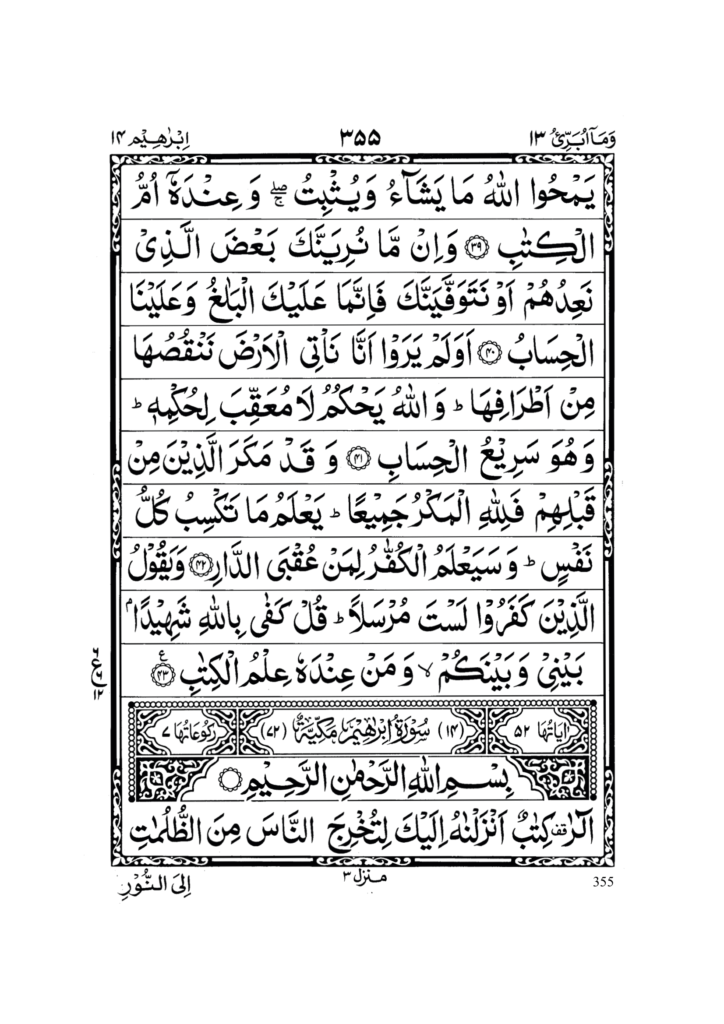 وَمَاۤ اُبَرِّئُ ۱۳ ۳۵۵ اِبْرٰهِيْم ۱۴
يَمْحُوا اللّٰهُ مَا يَشَآءُ وَيُثْبِتُ ۖۚ وَعِنْدَهٗۤ اُمُّ
الْكِتٰبِ ۝۳۹ وَاِنْ مَّا نُرِيَنَّكَ بَعْضَ الَّذِىْ
نَعِدُهُمْ اَوْ نَتَوَفَّيَنَّكَ فَاِنَّمَا عَلَيْكَ الْبَلٰغُ وَعَلَيْنَا
الْحِسَابُ ۝۴۰ اَوَلَمْ يَرَوْا اَنَّا نَاْتِى الْاَرْضَ نَنْقُصُهَا
مِنْ اَطْرَافِهَا ؕ وَاللّٰهُ يَحْكُمُ لَا مُعَقِّبَ لِحُكْمِهٖ ؕ
وَهُوَ سَرِيْعُ الْحِسَابِ ۝۴۱ وَقَدْ مَكَرَ الَّذِيْنَ مِنْ
قَبْلِهِمْ فَلِلّٰهِ الْمَكْرُ جَمِيْعًا ؕ يَعْلَمُ مَا تَكْسِبُ كُلُّ
نَفْسٍ ؕ وَسَيَعْلَمُ الْكُفّٰرُ لِمَنْ عُقْبَى الدَّارِ ۝۴۲ وَيَقُوْلُ
الَّذِيْنَ كَفَرُوْا لَسْتَ مُرْسَلًا ؕ قُلْ كَفٰى بِاللّٰهِ شَهِيْدًاۢ
بَيْنِىْ وَبَيْنَكُمْ ۙ وَمَنْ عِنْدَهٗ عِلْمُ الْكِتٰبِ ۝۴۳ ع
۶
ع ۶
۱۲
اٰيَاتُهَا ۵۲ (۱۴) سُوْرَةُ اِبْرٰهِيْمَ مَكِّيَّةٌ (۷۲) رُكُوْعَاتُهَا ۷
بِسْمِ اللّٰهِ الرَّحْمٰنِ الرَّحِيْمِ ۝
الٓرٰ ۟قف كِتٰبٌ اَنْزَلْنٰهُ اِلَيْكَ لِتُخْرِجَ النَّاسَ مِنَ الظُّلُمٰتِ
منزل ۳
اِلَى النُّوْرِ
355